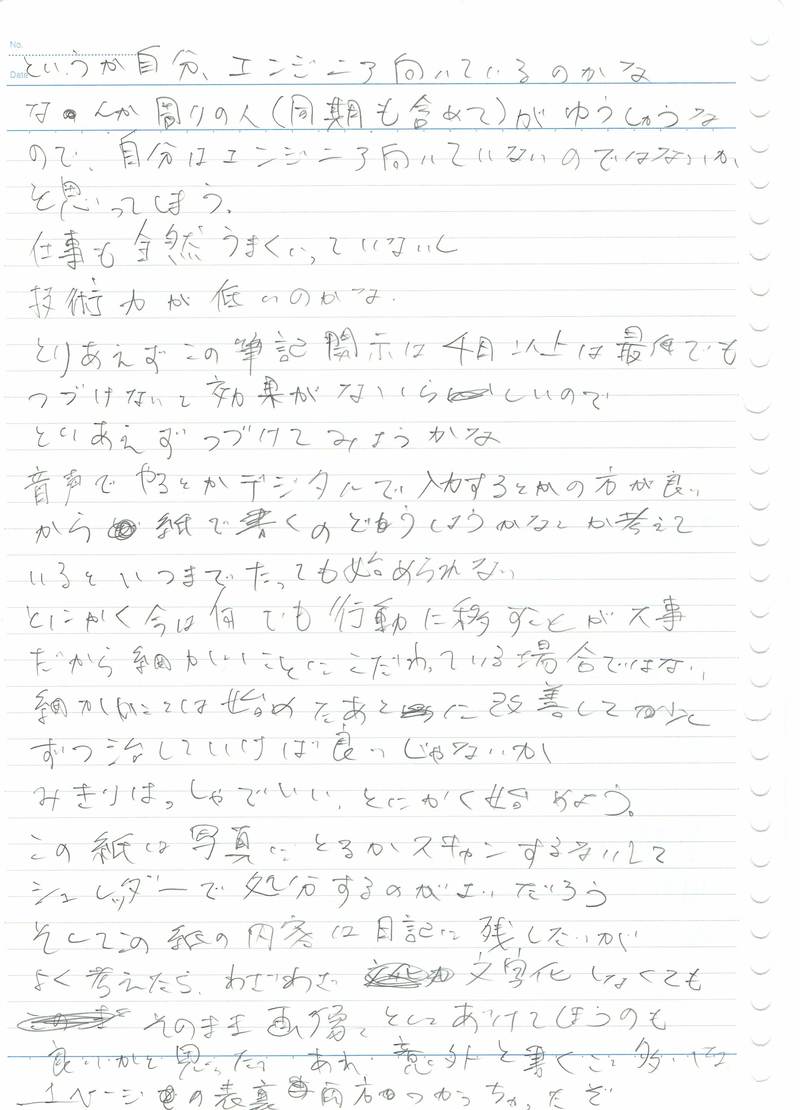 No.
Date
というか自分、エンジニア向いているのかな
なんか周りの人(同期も含めて)がゆうしゅうな
ので、自分はエンジニア向いていないのではないか
と思ってしまう。
仕事も全然うまくいっていないし
技術力が低いのかな。
とりあえずこの筆記開示は4日以上は最低でも
つづけないと効果がないらしいので
とりあえずつづけてみようかな
音声でやるとかデジタルで入力するとかの方が良い
から紙で書くのどうしようかなとか考えて
いるといつまでたっても始められない
とにかく今は何でも行動に移すことが大事
だから細かいことにこだわっている場合ではない
細かいことは始めたあとに改善して少し
ずつ治していけば良いじゃないか
みきりはっしゃでいい、とにかく始めよう。
この紙は写真にとるかスキャンするないして
シュレッダーで処分するのがよいだろう
そしてこの紙の内容は日記に残したいが
よく考えたら、わざわざ文字化しなくても
そのまま画像としてあげてしまうのも
良いかと思ったり あれ、意外と書くこと多いな
1ページの表裏両方つかっちゃったぞ